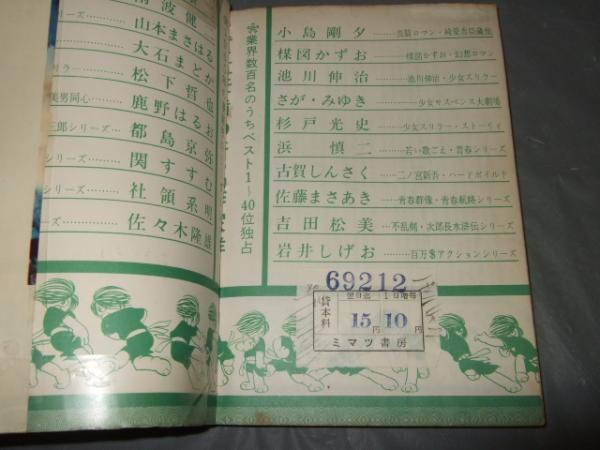 業界数百名のうちベスト1〜40位独占
小島剛夕
楳図かずお
池川伸治……池川伸治・少女スリラー
さが・みゆき……少女サスペンス大劇場
杉戸光史……少女スリラー・ストーリィ
浜慎二……若い歌ごえ・青春シリーズ
古賀しんさく……二ノ宮新吾・ハードボイルド
佐藤まさあき……青春群像・青春航路シリーズ
吉田松美……不乱剣・次郎長水滸伝シリーズ
岩井しげお……百万$アクションシリーズ
波健
山本まさはる
大石まどか
ラー……松下哲也
美男同心……鹿野はるお
三郎シリーズ……都島京弥
シリーズ……関すすむ
シリーズ……社領系明
ーズ……佐々木隆雄
69212
貸本料
翌日迄
1日増毎
15円
10円
ミマツ書房